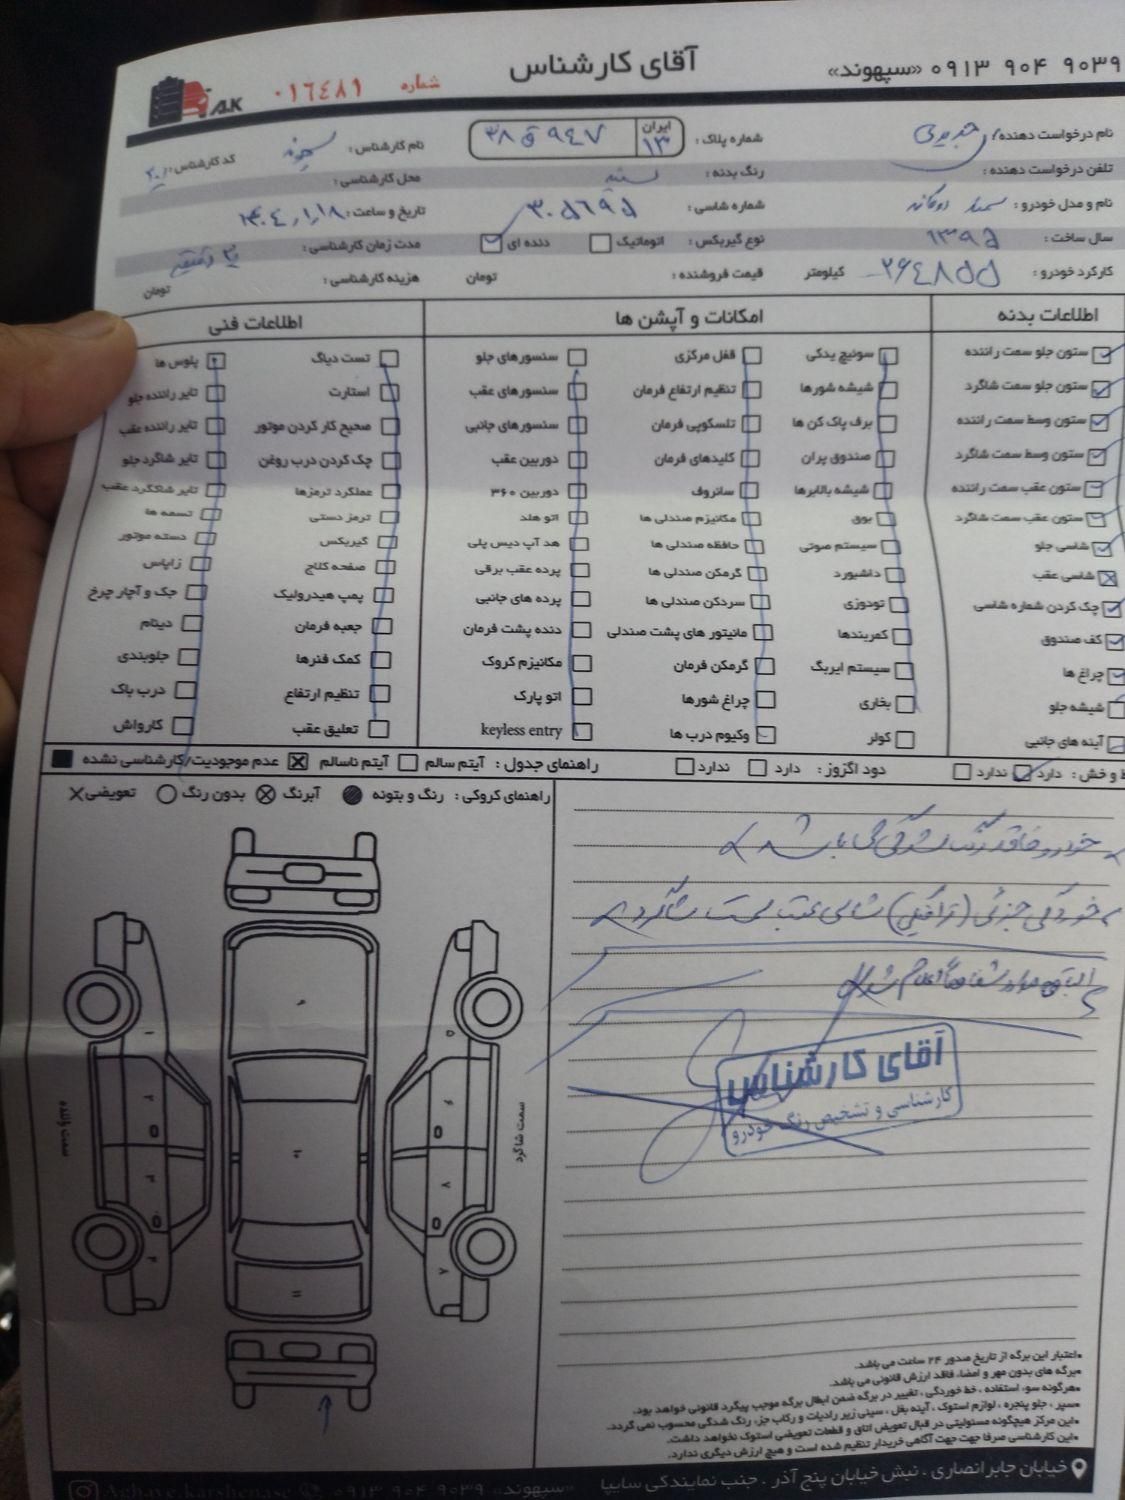 آقای کارشناس
۰۹۱۳ ۹۰۴ ۹۰۳۹ «سپهوند»
شماره ۰۱۶۴۸۱
AK
نام درخواست دهنده:
شماره پلاک : ایران ۱۳ ۹۴۷ ق ۳۸
نام کارشناس : سپهوند
کد کارشناس :
تلفن درخواست دهنده :
رنگ بدنه : سفید
محل کارشناسی :
نام و مدل خودرو : سمند دوگانه
شماره شاسی : ۳۰۵۶۹۵
تاریخ و ساعت :
سال ساخت : ۱۳۹۵
نوع گیربکس : اتوماتیک دنده ای
مدت زمان کارشناسی : دقیقه
کارکرد خودرو : ۲۶۴۸۵۵ کیلومتر
قیمت فروشنده : تومان
هزینه کارشناسی : تومان
اطلاعات بدنه
ستون جلو سمت راننده
ستون جلو سمت شاگرد
ستون وسط سمت راننده
ستون وسط سمت شاگرد
ستون عقب سمت راننده
ستون عقب سمت شاگرد
شاسی جلو
شاسی عقب
چک کردن شماره شاسی
کف صندوق
چراغ ها
شیشه جلو
آینه های جانبی
امکانات و آپشن ها
سوئیچ یدکی
شیشه شورها
برف پاک کن ها
صندوق پران
شیشه بالابرها
بوق
سیستم صوتی
داشبورد
تودوزی
کمربندها
سیستم ایربگ
بخاری
کولر
قفل مرکزی
تنظیم ارتفاع فرمان
تلسکوپی فرمان
کلیدهای فرمان
سانروف
مکانیزم صندلی ها
حافظه صندلی ها
گرمکن صندلی ها
سردکن صندلی ها
مانیتور های پشت صندلی
گرمکن فرمان
چراغ شورها
وکیوم درب ها
سنسورهای جلو
سنسورهای عقب
سنسورهای جانبی
دوربین عقب
دوربین ۳۶۰
اتو هلد
هد آپ دیس پلی
پرده عقب برقی
پرده های جانبی
دنده پشت فرمان
مکانیزم کروک
اتو پارک
keyless entry
اطلاعات فنی
تست دیاگ
استارت
صحیح کار کردن موتور
چک کردن درب روغن
عملکرد ترمزها
ترمز دستی
گیربکس
صفحه کلاچ
پمپ هیدرولیک
جعبه فرمان
کمک فنرها
تنظیم ارتفاع
تعلیق عقب
پلوس ها
تایر راننده جلو
تایر راننده عقب
تایر شاگرد جلو
تایر شاگرد عقب
تسمه ها
دسته موتور
زاپاس
جک و آچار چرخ
دینام
جلوبندی
درب باک
کارواش
و خش : دارد ندارد
دود اگزوز : دارد ندارد
راهنمای جدول : آیتم سالم آیتم ناسالم عدم موجودیت/کارشناسی نشده
راهنمای کروکی : رنگ و بتونه آبرنگ بدون رنگ تعویضی
خودرو فاقد رنگ شدگی می باشد
خوردگی جزئی (ترافیکی) شاسی عقب سمت شاگرد
مابقی موارد شفاهاً اعلام شد
آقای کارشناس
کارشناسی و تشخیص رنگ خودرو
سمت راننده
سمت شاگرد
۱
۲
۳
۴
۹
۱۰
۱۱
۵
۶
۷
۸
•اعتبار این برگه از تاریخ صدور ۲۴ ساعت می باشد.
•برگه های بدون مهر و امضا، فاقد ارزش قانونی می باشد.
•هرگونه سوء استفاده ، خط خوردگی ، تغییر در برگه ضمن ابطال برگه موجب پیگرد قانونی خواهد بود.
•سپر ، جلو پنجره ، لوازم استوک ، آینه بغل ، سینی زیر رادیات و رکاب جزء رنگ شدگی محسوب نمی گردد.
•این مرکز هیچگونه مسئولیتی در قبال تعویض اتاق و قطعات تعویضی استوک نخواهد داشت.
•این کارشناسی صرفا جهت جهت آگاهی خریدار تنظیم شده است و هیچ ارزش دیگری ندارد.
خیابان جابر انصاری . نبش خیابان پنج آذر . جنب نمایندگی سایپا
«سپهوند» ۰۹۱۳ ۹۰۴ ۹۰۳۹
Aghaye.karshenase